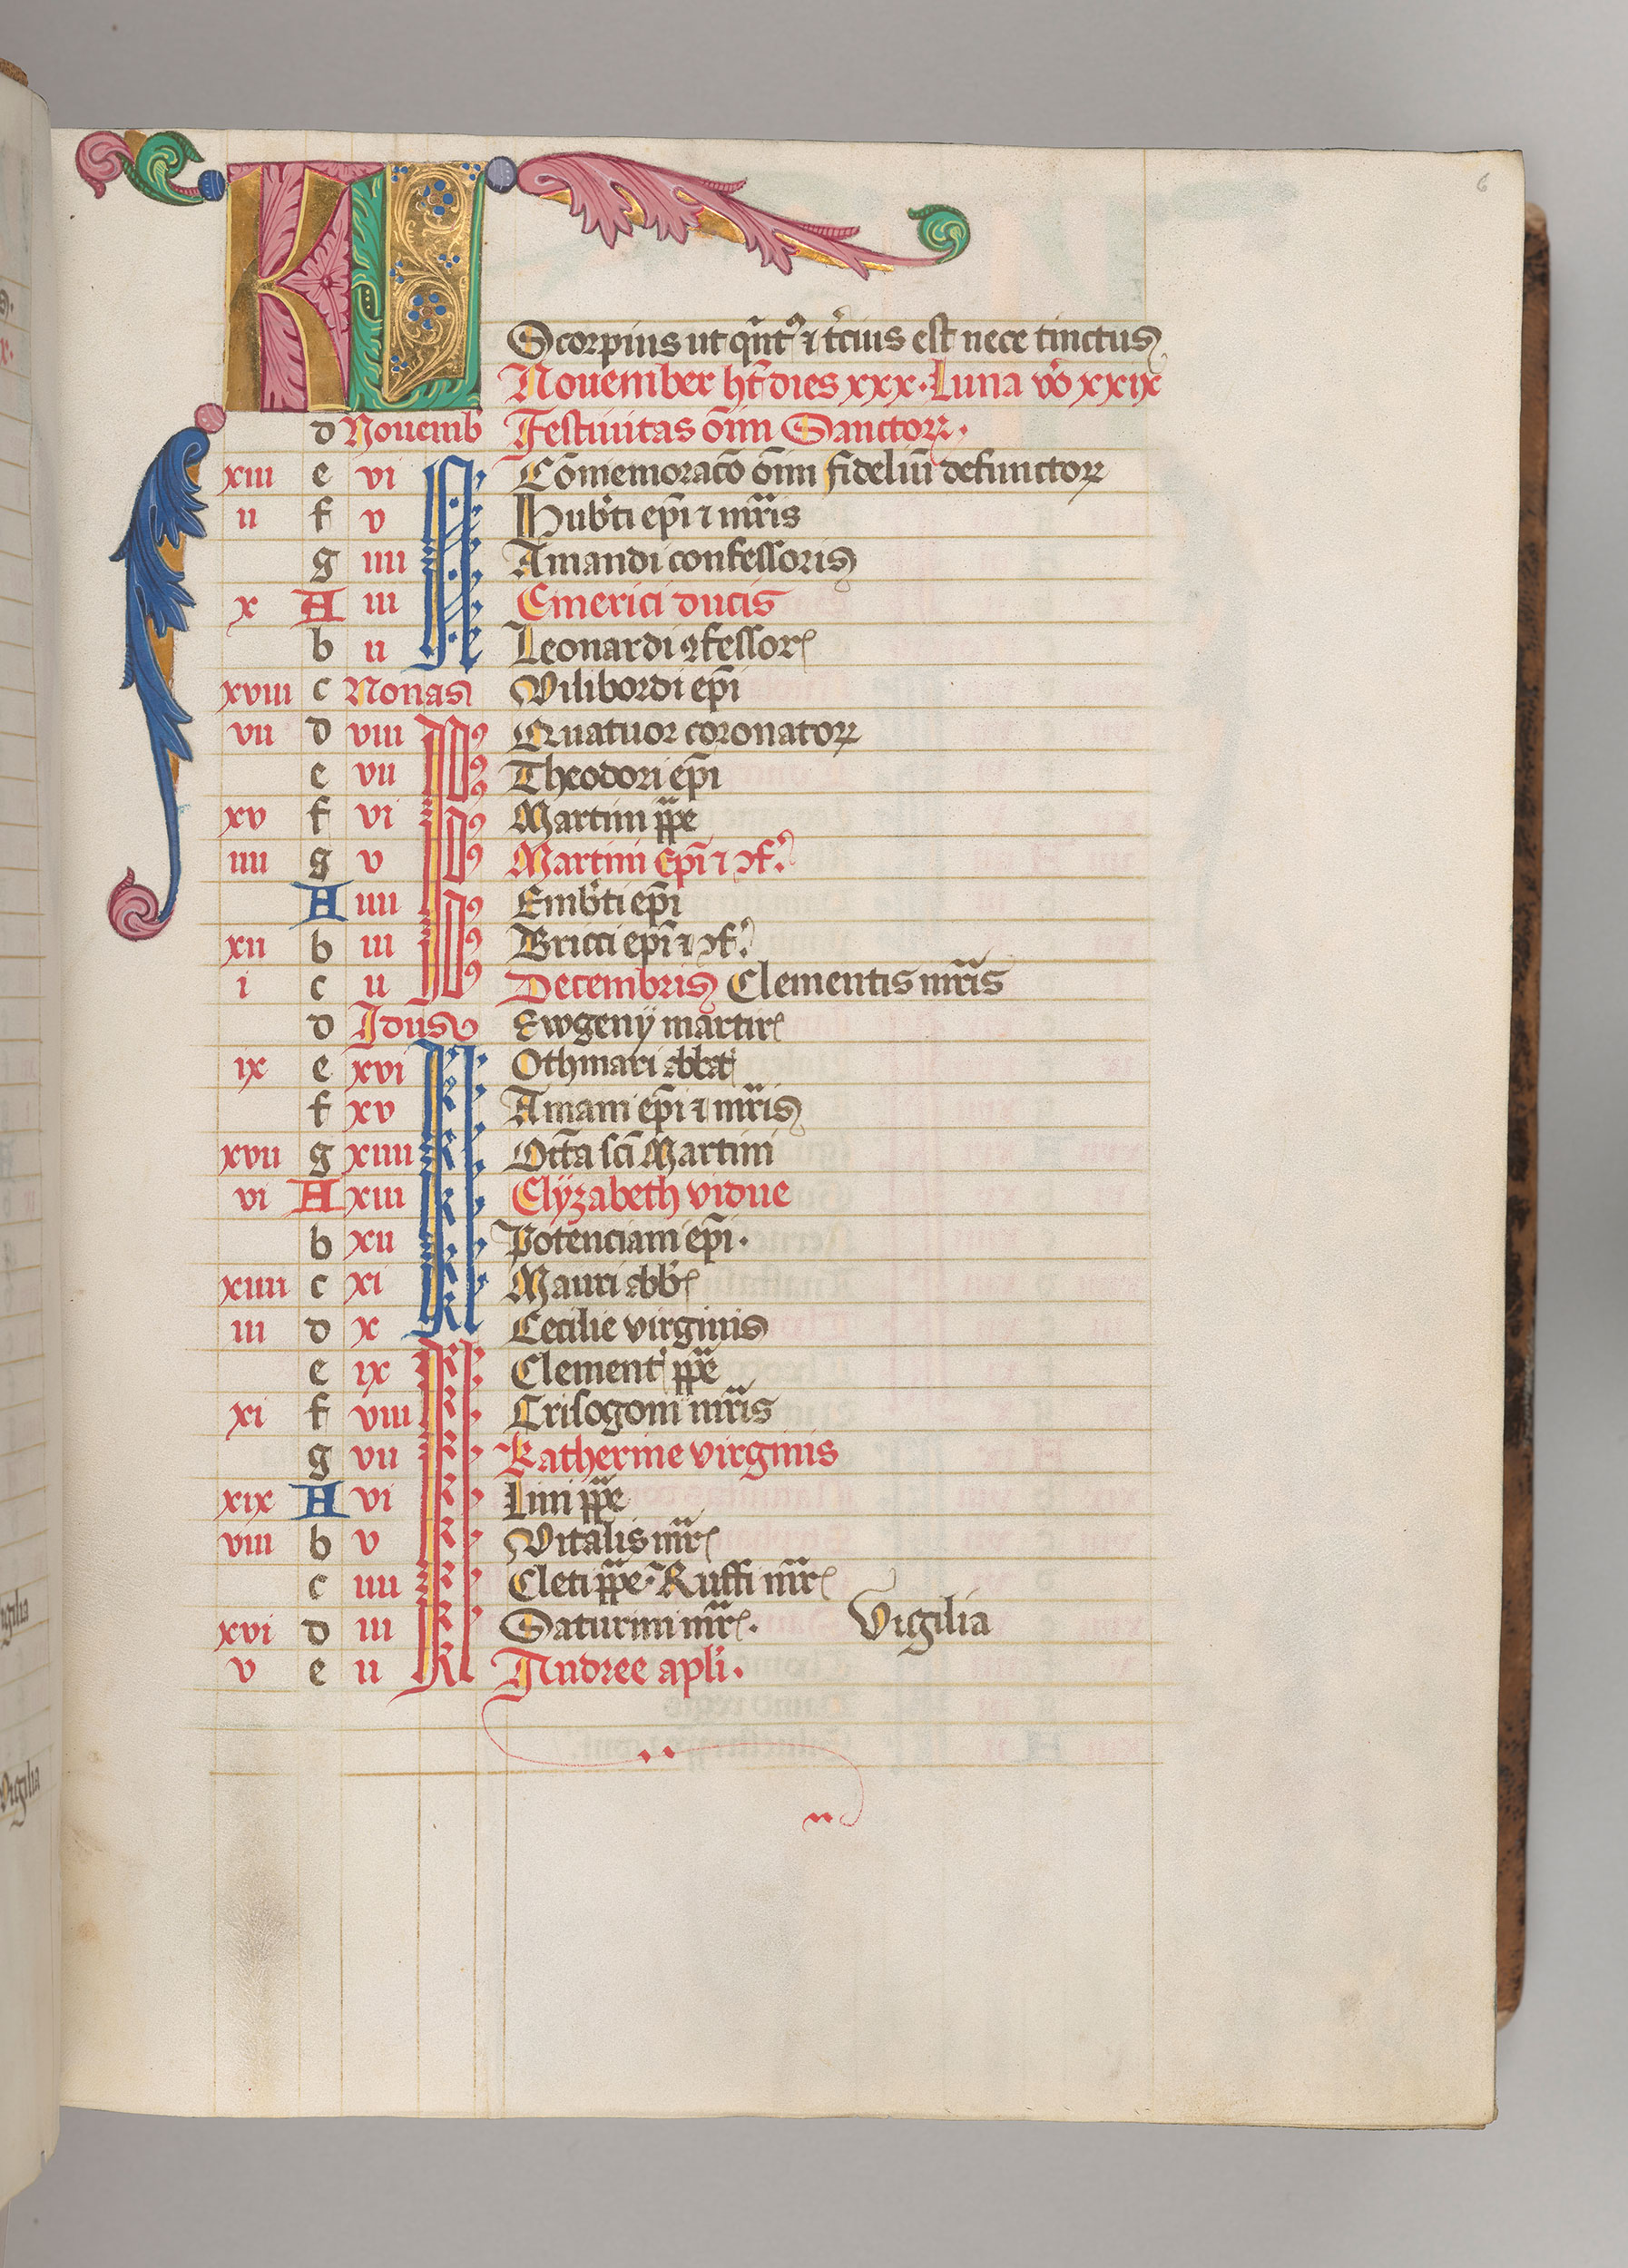 6
KL
Scorpius ut qnt⁹ ⁊ t̓cius est nece tinctus
Nouember ht̄ dies xxx · Luna vo̊ xxix
d Nouemb̓ Festiuitas om̄i Sanctoꝝ ·
xiii e vi N Co̅memoraco̅ om̄i fideliu̅ defunctoꝝ
ii f v Hub̓ti ep̄i ⁊ mr̄is
g iiii Amandi confessoris
x A iii Emerici ducis
b ii Leonardi ꝯfessor
xviii c Nonas Vilibordi ep̄i
vii d viii Idus Quatuor coronatoꝝ
e vii Theodori ep̄i
xv f vi Martini p̄pe
iiii g v Martini Ep̄i ⁊ ꝯf.
A iiii Emb̓ti ep̄i
xii b iii Bricci ep̄i ⁊ ꝯf.
i c ii Decembris Clementis mr̄is
d Idus Ewgenÿ martir
ix e xvi kl Othmari abbat
f xv Amani ep̄i ⁊ mr̄is
xvii g xiiii Octa̅ sc̄i Martini
vi A xiii Elÿzabeth vidue
b xii Potenciani ep̄i ·
xiiii c xi Mauri abb
iii d x Cecilie virginis
e ix Kl Clement p̄pe
xi f viii Crisogoni mr̄is
g vii Katherine virginis
xix A vi Lini p̄pe
viii b v Vitalis mr̄
c iiii Cleti p̄pe · Ruffi mr̄
xvi d iii Saturini mr̄ · Vigilia
v e ii Andree apl̓i ·
Vigilia